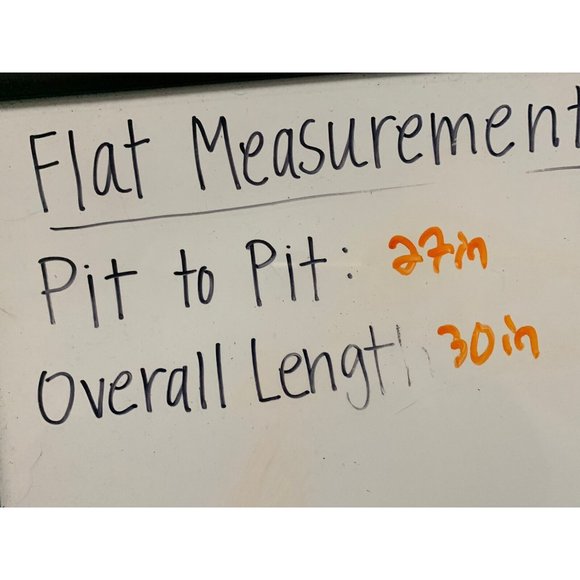 Flat Measurement
Pit to Pit: 27in
Overall Length 30in